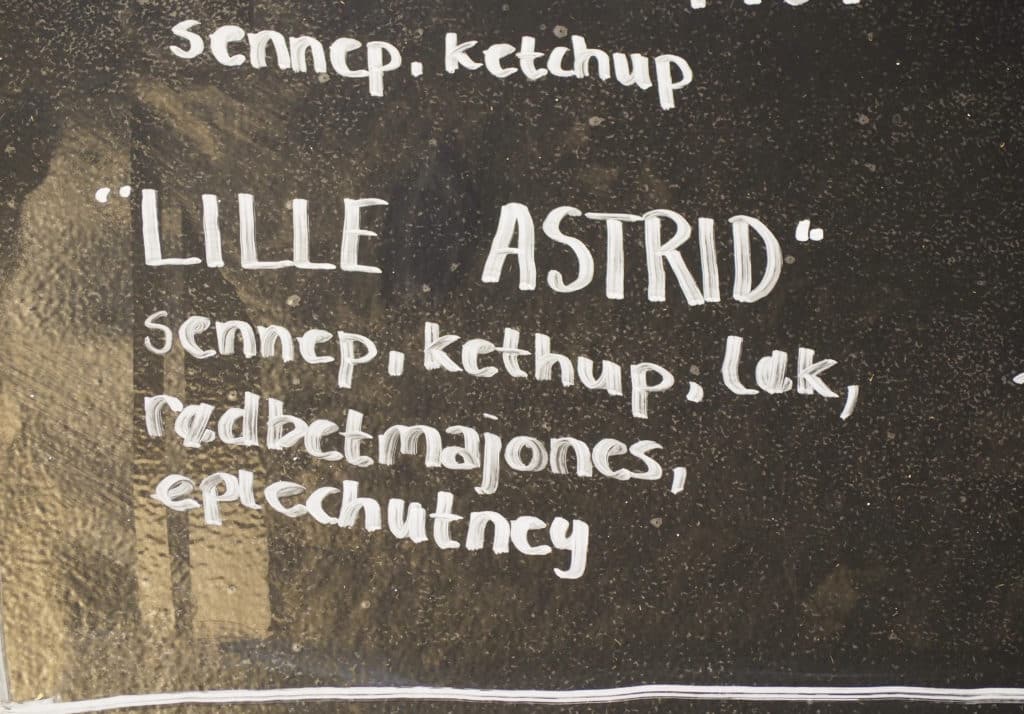 sennep, ketchup
"LILLE ASTRID"
sennep, kethup, løk,
rødbetmajones,
eplechutney